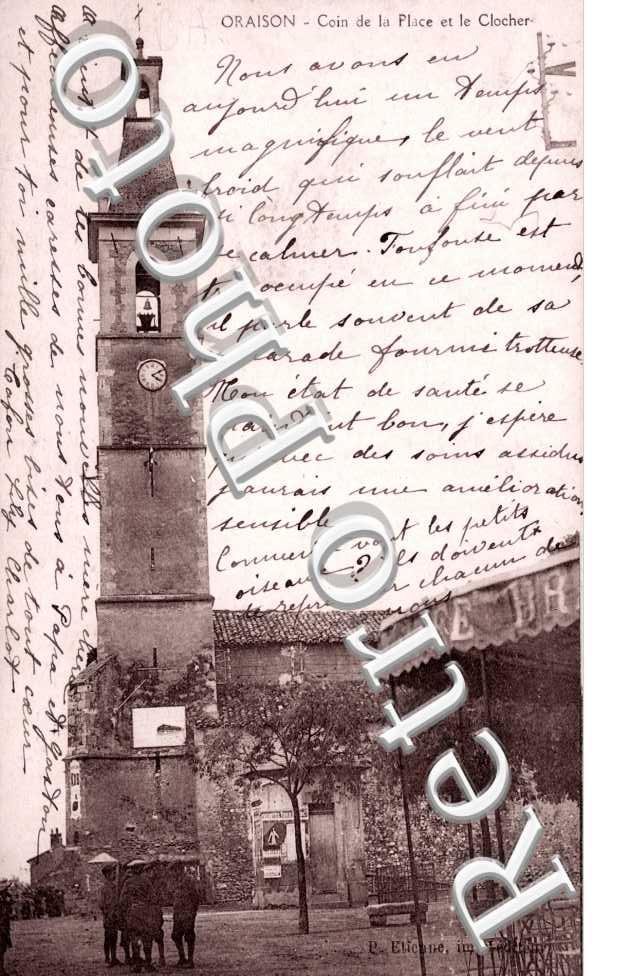 ORAISON - Coin de la Place et le Clocher
Nous avons eu
aujourd'hui un temps
magnifique, le vent
froid qui soufflait depuis
si longtemps a fini par
se calmer. Toulouse est
occupé en ce moment,
il parle souvent de sa
fourmi trotteuse.
Mon état de santé se
maintient bon, j'espère
avec des soins assidus
j'aurais une amélioration
sensible.
Comment vont les petits
oiseaux? ils doivent
chacun de
nous
de tes bonnes nouvelles mère chérie
affectueuses caresses de nous tous à Papa et Gaston
et pour toi mille grosses bises de tout cœur
Lily Charlot
P. Etienne, im
Retro Photo